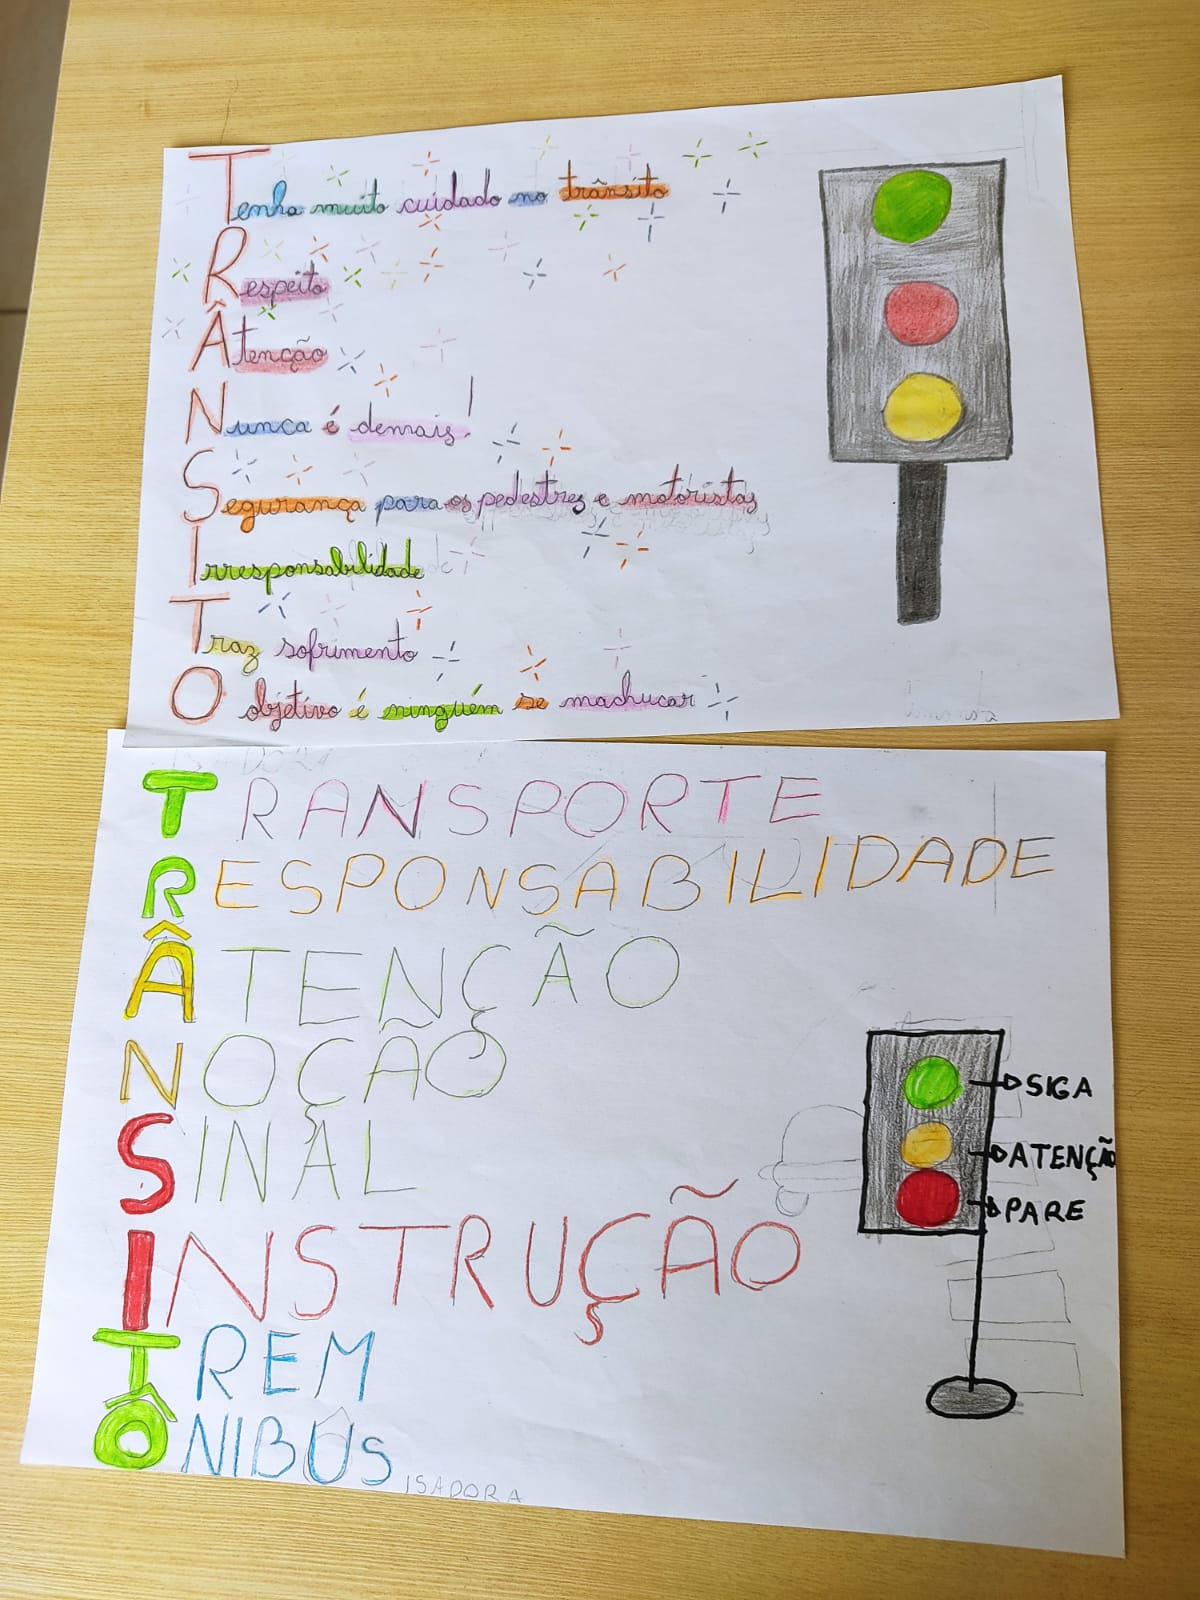 Tenha muito cuidado no trânsito
Respeito
Âtenção
Nunca é demais!
Segurança para os pedestres e motoristas
Irresponsabilidade
Traz sofrimento
O objetivo é ninguém se machucar
TRANSPORTE
RESPONSABILIDADE
ÂTENÇÃO
NOÇÃO
SINAL
INSTRUÇÃO
TREM
ÔNIBUS
ISADORA
SIGA
ATENÇÃO
PARE